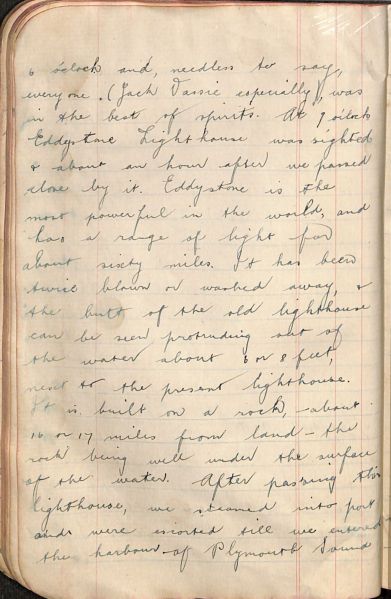 6 o'clock and, needless to say,
everyone. (Jack Vassie especially), was
in the best of spirits. At 7 o'clock
Eddystone Lighthouse was sighted
& about an hour after we passed
close by it. Eddystone is the
most powerful in the world, and
has a range of light for
about sixty miles. It has been
twice blown or washed away, &
the butt of the old lighthouse
can be seen protruding out of
the water about 6 or 8 feet,
next to the present lighthouse.
It is built on a rock, about
16 or 17 miles from land - the
rock being well under the surface
of the water. After passing this
lighthouse, we steamed into port
and were escorted till we entered
the harbour of Plymouth Sound